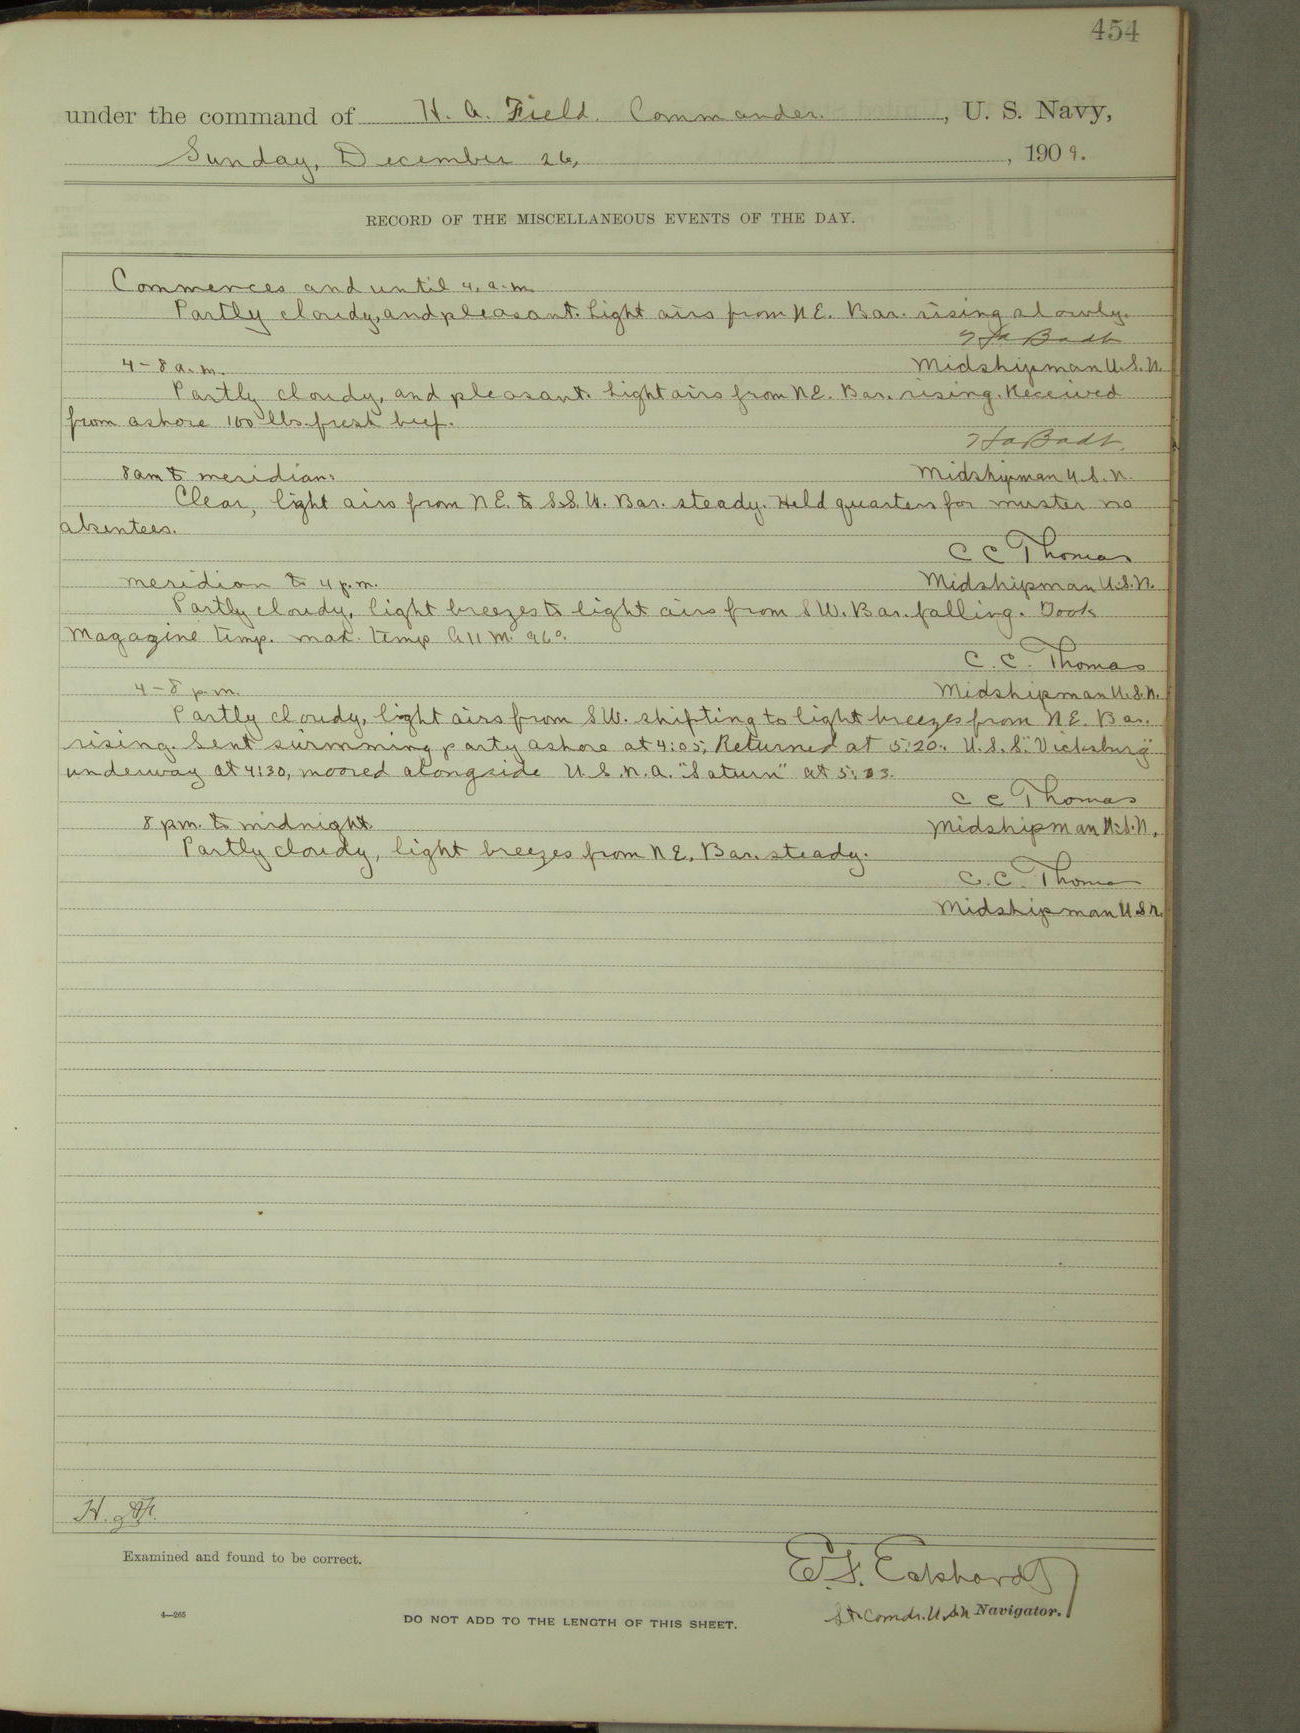 454
under the command of H. A. Field. Commander. , U. S. Navy,
Sunday, December 26, , 1909.
RECORD OF THE MISCELLANEOUS EVENTS OF THE DAY.
Commences and until 4, a.m.
Partly cloudy, and pleasant. Light airs from N E. Bar. rising slowly.
H A Badt
4-8 a.m. Midshipman U.S.N.
Partly cloudy, and pleasant. Light airs from N E. Bar. rising. Received
from ashore 100 lbs. fresh beef.
H A Badt.
8 am to meridian: Midshipman U.S.N.
Clear, light airs from N E. to S.S.W. Bar. steady. Held quarters for muster no
absentees.
C C Thomas
meridian to 4 p.m. Midshipman U.S.N.
Partly cloudy, light breezes to light airs from SW. Bar. falling. Took
Magazine temp. max. temp A 11 M. 96°.
C. C. Thomas
4-8 p.m. Midshipman U.S.N.
Partly cloudy, light airs from SW. shifting to light breezes from N E. Bar.
rising. Sent swimming party ashore at 4:05, Returned at 5:20. U.S.S. "Vicksburg"
underway at 4:30, moored alongside U.S.N.A. "Saturn" at 5:
C C Thomas
8 pm. to midnight. Midshipman U.S.N.
Partly cloudy, light breezes from N E, Bar. steady.
C. C. Thomas
Midshipman U S N.
H.
Examined and found to be correct.
E. F. Eckhardt
Lt. Comdr. U.S.N Navigator.
4—265
DO NOT ADD TO THE LENGTH OF THIS SHEET.